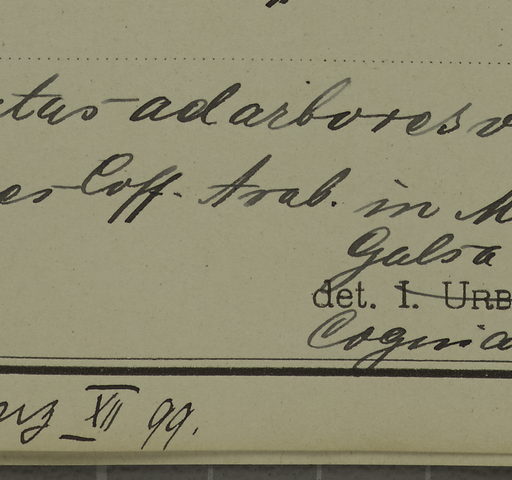 tus ad arbores v
es Coff. Arab. in M
Galsa
det. I. URB
Cognia
XII 99.